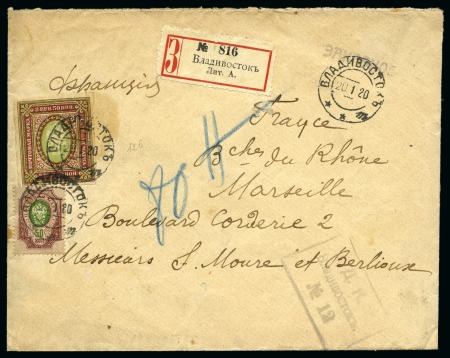 № 816
З
Владивостокъ
Лит. А.
ВЛАДИВОСТОКЪ
20 1 20
Франція
France
Bches du Rhône
Marseille
Boulevard Corderie 2
Messieurs S. Moure et Berlioux
ВЛАДИВОСТОКЪ
50
№ 12